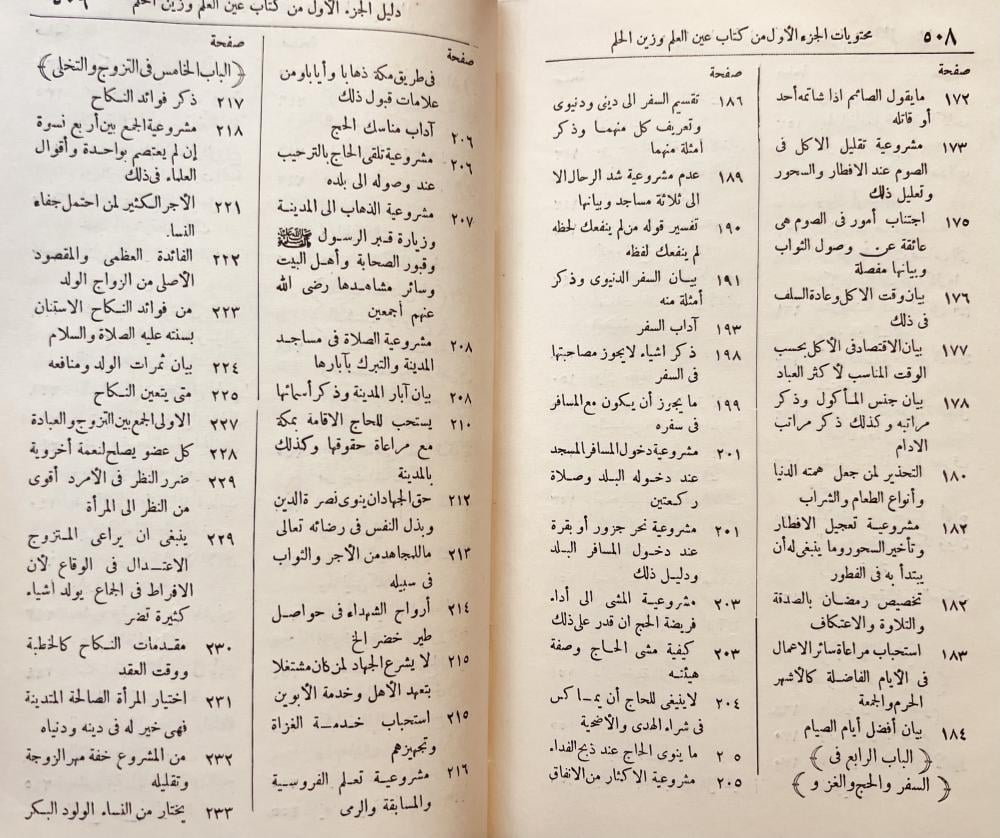 ٥٠٨ محتويات الجزء الأول من كتاب عين العلم وزين الحلم
صفحة
١٧٢ ما يقول الصائم اذا شاتمه أحد
أو قاتله
١٧٣ مشروعية تقليل الاكل فى
الصوم عند الافطار والسحور
وتعليل ذلك
١٧٥ اجتناب أمور فى الصوم هى
عائقة عن وصول الثواب
وبيانها مفصلة
١٧٦ بيان وقت الاكل وعادة السلف
فى ذلك
١٧٧ بيان الاقتصاد فى الأكل بحسب
الوقت المناسب لأكثر العباد
١٧٨ بيان جنس المأكول وذكر
مراتبه وكذلك ذكر مراتب
الادام
١٨٠ التحذير لمن جعل همته الدنيا
وأنواع الطعام والشراب
١٨٢ مشروعية تعجيل الافطار
وتأخير السحور وما ينبغى له أن
يبتدأ به فى الفطور
١٨٢ تخصيص رمضان بالصدقة
والتلاوة والاعتكاف
١٨٣ استحباب مراعاة سائر الاعمال
فى الأيام الفاضلة كالأشهر
الحرم والجمعة
١٨٤ بيان أفضل أيام الصيام
﴿ الباب الرابع فى ﴾
﴿ السفر والحج والغزو ﴾
صفحة
١٨٦ تقسيم السفر الى دينى ودنيوى
وتعريف كل منهما وذكر
أمثلة منهما
١٨٩ عدم مشروعية شد الرحال الا
الى ثلاثة مساجد وبيانها
١٩٠ تفسير قوله من لم ينفعك لحظه
لم ينفعك لفظه
١٩١ بيان السفر الدنيوى وذكر
أمثلة منه
١٩٣ آداب السفر
١٩٨ ذكر اشياء لا يجوز مصاحبتها
فى السفر
١٩٩ ما يجوز أن يكون مع المسافر
فى سفره
٢٠١ مشروعية دخول المسافر المسجد
عند دخوله البلد وصلاة
ركعتين
٢٠١ مشروعية نحر جزور أو بقرة
عند دخول المسافر البلد
ودليل ذلك
٢٠٣ مشروعية المشى الى أداء
فريضة الحج ان قدر على ذلك
٢٠٣ كيفية مشى الحاج وصفة
هيئته
٢٠٤ لا ينبغى للحاج أن يماكس
فى شراء الهدى والأضحية
٢ ٥ ما ينوى الحاج عند ذبح الفداء
٢٠٥ مشروعية الاكثار من الانفاق
دليل الجزء الأول من كتاب عين العلم وزين الحلم ٥٠٩
صفحة
فى طريق مكة ذهابا وأيابا ومن
علامات قبول ذلك
٢٠٦ آداب مناسك الحج
٢٠٦ مشروعية تلقى الحاج بالترحيب
عند وصوله الى بلده
٢٠٧ مشروعية الذهاب الى المدينة
وزيارة قبر الرسول ﷺ
وقبور الصحابة وأهل البيت
وسائر مشاهدها رضى الله
عنهم أجمعين
٢٠٨ مشروعية الصلاة فى مساجد
المدينة والتبرك بآبارها
٢٠٨ بيان آبار المدينة وذكر أسمائها
٢١٠ يستحب للحاج الاقامة بمكة
مع مراعاة حقوقها وكذلك
بالمدينة
٢١٢ حق الجهاد ان ينوى نصرة الدين
وبذل النفس فى رضائه تعالى
٢١٣ ما للمجاهد من الأجر والثواب
فى سبيله
٢١٤ أرواح الشهداء فى حواصل
طير خضر الخ
٢١٥ لا يشرع الجهاد لمن كان مشتغلا
بتعهد الأهل وخدمة الأبوين
٢١٥ استحباب خدمة الغزاة
وتجهيزهم
٢١٦ مشروعية تعلم الفروسية
والمسابقة والرمى
صفحة
﴿ الباب الخامس فى التزوج والتخلى ﴾
٢١٧ ذكر فوائد النكاح
٢١٨ مشروعية الجمع بين أربع نسوة
إن لم يعتصم بواحدة وأقوال
العلماء فى ذلك
٢٢١ الأجر الكثير لمن احتمل جفاء
النسا.
٢٢٢ الفائدة العظمى والمقصود
الأصلى من الزواج الولد
٢٢٣ من فوائد النكاح الاستنان
بسنته عليه الصلاة والسلام
٢٢٤ بيان ثمرات الولد ومنافعه
٢٢٥ متى يتعين النكاح
٢٢٧ الاولى الجمع بين التزوج والعبادة
٢٢٨ كل عضو يصلح لنعمة أخروية
٢٢٩ ضرر النظر فى الأمرد أقوى
من النظر الى المرأة
٢٢٩ ينبغى ان يراعى المتزوج
الاعتدال فى الوقاع لأن
الافراط فى الجماع يولد اشياء
كثيرة تضر
٢٣٠ مقدمات النكاح كالخطبة
ووقت العقد
٢٣١ اختيار المرأة الصالحة المتدينة
فهى خير له فى دينه ودنياه
٢٣٢ من المشروع خفة مهر الزوجة
وتقليله
٢٣٣ يختار من النساء الولود البكر